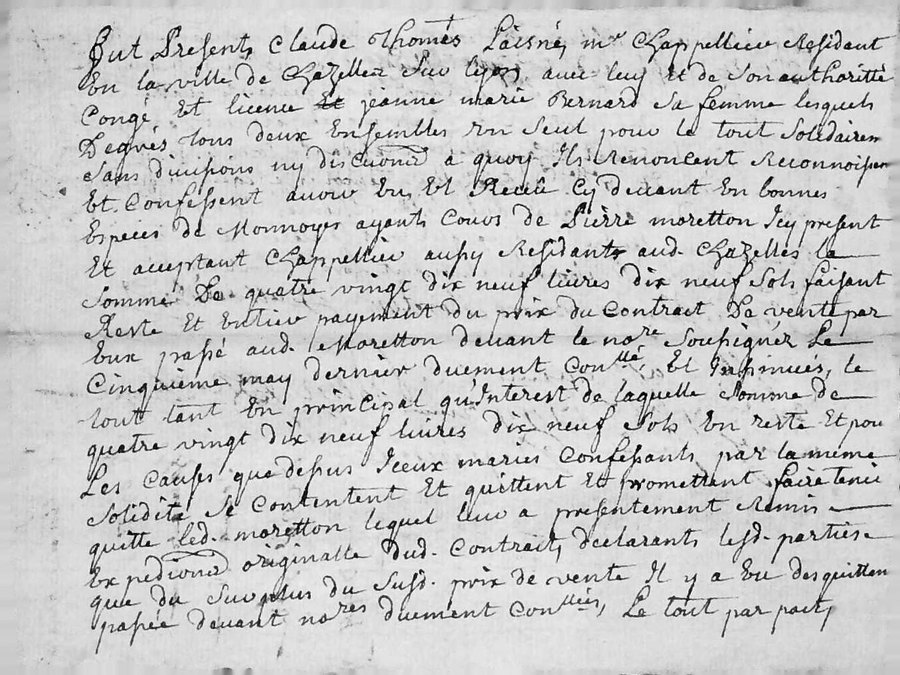 fut Presents Claude Thomés Laisné, mᵉ Chappellier Residant
En la ville de Chazelles sur lyon avec luy Et de son authoritté
Congé Et licence Et jeanne marie Bernard sa femme lesquels
Degrés tous deux Ensembles un seul pour le tout solidaires
sans divisions ny discutions a quoy Ils Renoncent Reconnoissen
Et Confessent avoir Eu Et Receu Cy devant En bonnes
Especes de Monnoyes ayants Cours de Pierre moretton Icy present
Et acceptant Chappellier aussy Residants aud. Chazelles la
somme De quatre vingt dix neuf livres dix neuf sols faisant
Reste Et Entier payement du prix du Contract De vente par
Eux passé aud. Moretton devant le noʳᵉ soussignéz Le
Cinquieme may dernier duement Conᵗˡˡé, Et Insinuées, le
tout tant En principal qu'Interest de laquelle somme de
quatre vingt dix neuf livres dix neuf sols En reste Et pou
Les Causes que dessus Iceux mariés Confessants par la même
solidité se Contentent Et quittent Et promettent faire tenir
quitte led. moretton lequel leur a presentement Remis
Expedions originalle dud. Contract, declarants lesd. parties
que du surplus du susd. prix de vente Il y a Eu des quittan
passée devant noʳᵉˢ duement Conᵗˡˡéés, Le tout par pact,